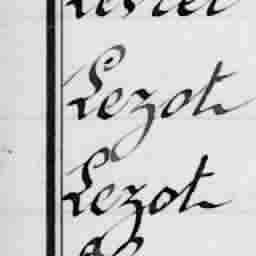 Lezot
Lezot